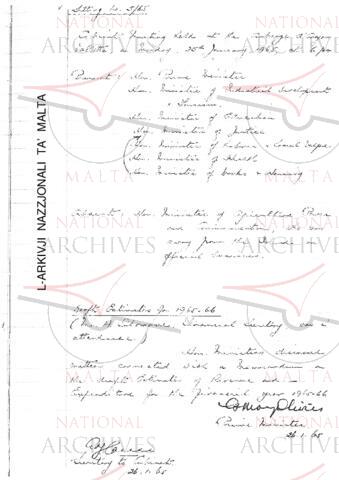 Sitting No. 5/65
Cabinet meeting held at the Auberge d'Aragon
Valletta on Monday, 25th January 1965, at 6 p.m.
Present: Hon. Prime Minister
Hon. Minister of Industrial Development
& Tourism
Hon. Minister of Education
Hon. Minister of Justice
Hon. Minister of Labour &
Hon. Minister of Health
Hon. Minister of Works & Housing
Absent: Hon. Minister of Agriculture, Power
and Communications, who was
away from the Island on
official business.
Draft Estimates for 1965-66
Financial Secretary was in
attendance)
Hon. Ministers discussed
matters connected with a Memorandum on
the draft Estimates of Revenue and
Expenditure for the financial year 1965-66
Prime Minister
26.1.65
Secretary to Cabinet.
26.1.65
L-ARKIVJI NAZZJONALI TA' MALTA
NATIONAL ARCHIVES MALTA